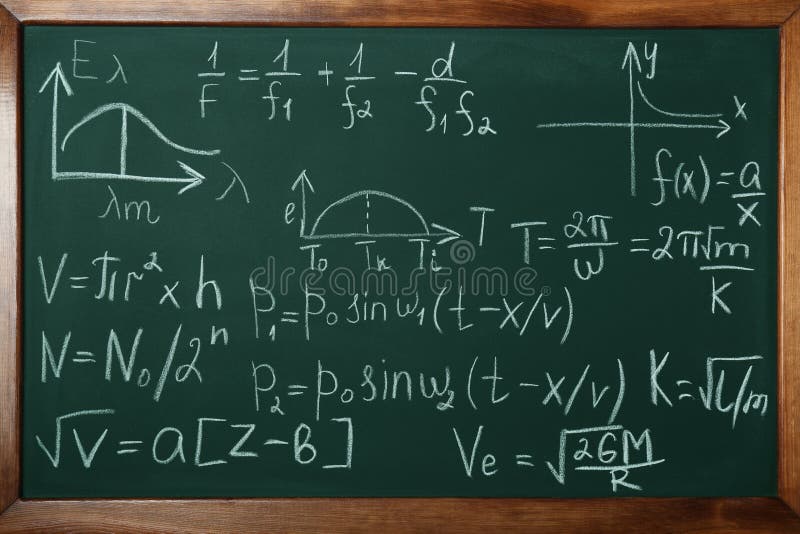 Eλ
1/F = 1/f₁ + 1/f₂ − d/f₁f₂
y
x
λ
λm
f(x) = a/x
e
T₀ Tк Ti
T
T = 2π/ω = 2π√m/K
V = πr² x h
p₁ = p₀ sinw₁(t − x/v)
N = N₀/2ⁿ
p₂ = p₀ sinw₂(t − x/v)
K = √l/m
√v = a[Z − B]
Ve = √2GM/R
dreamstime